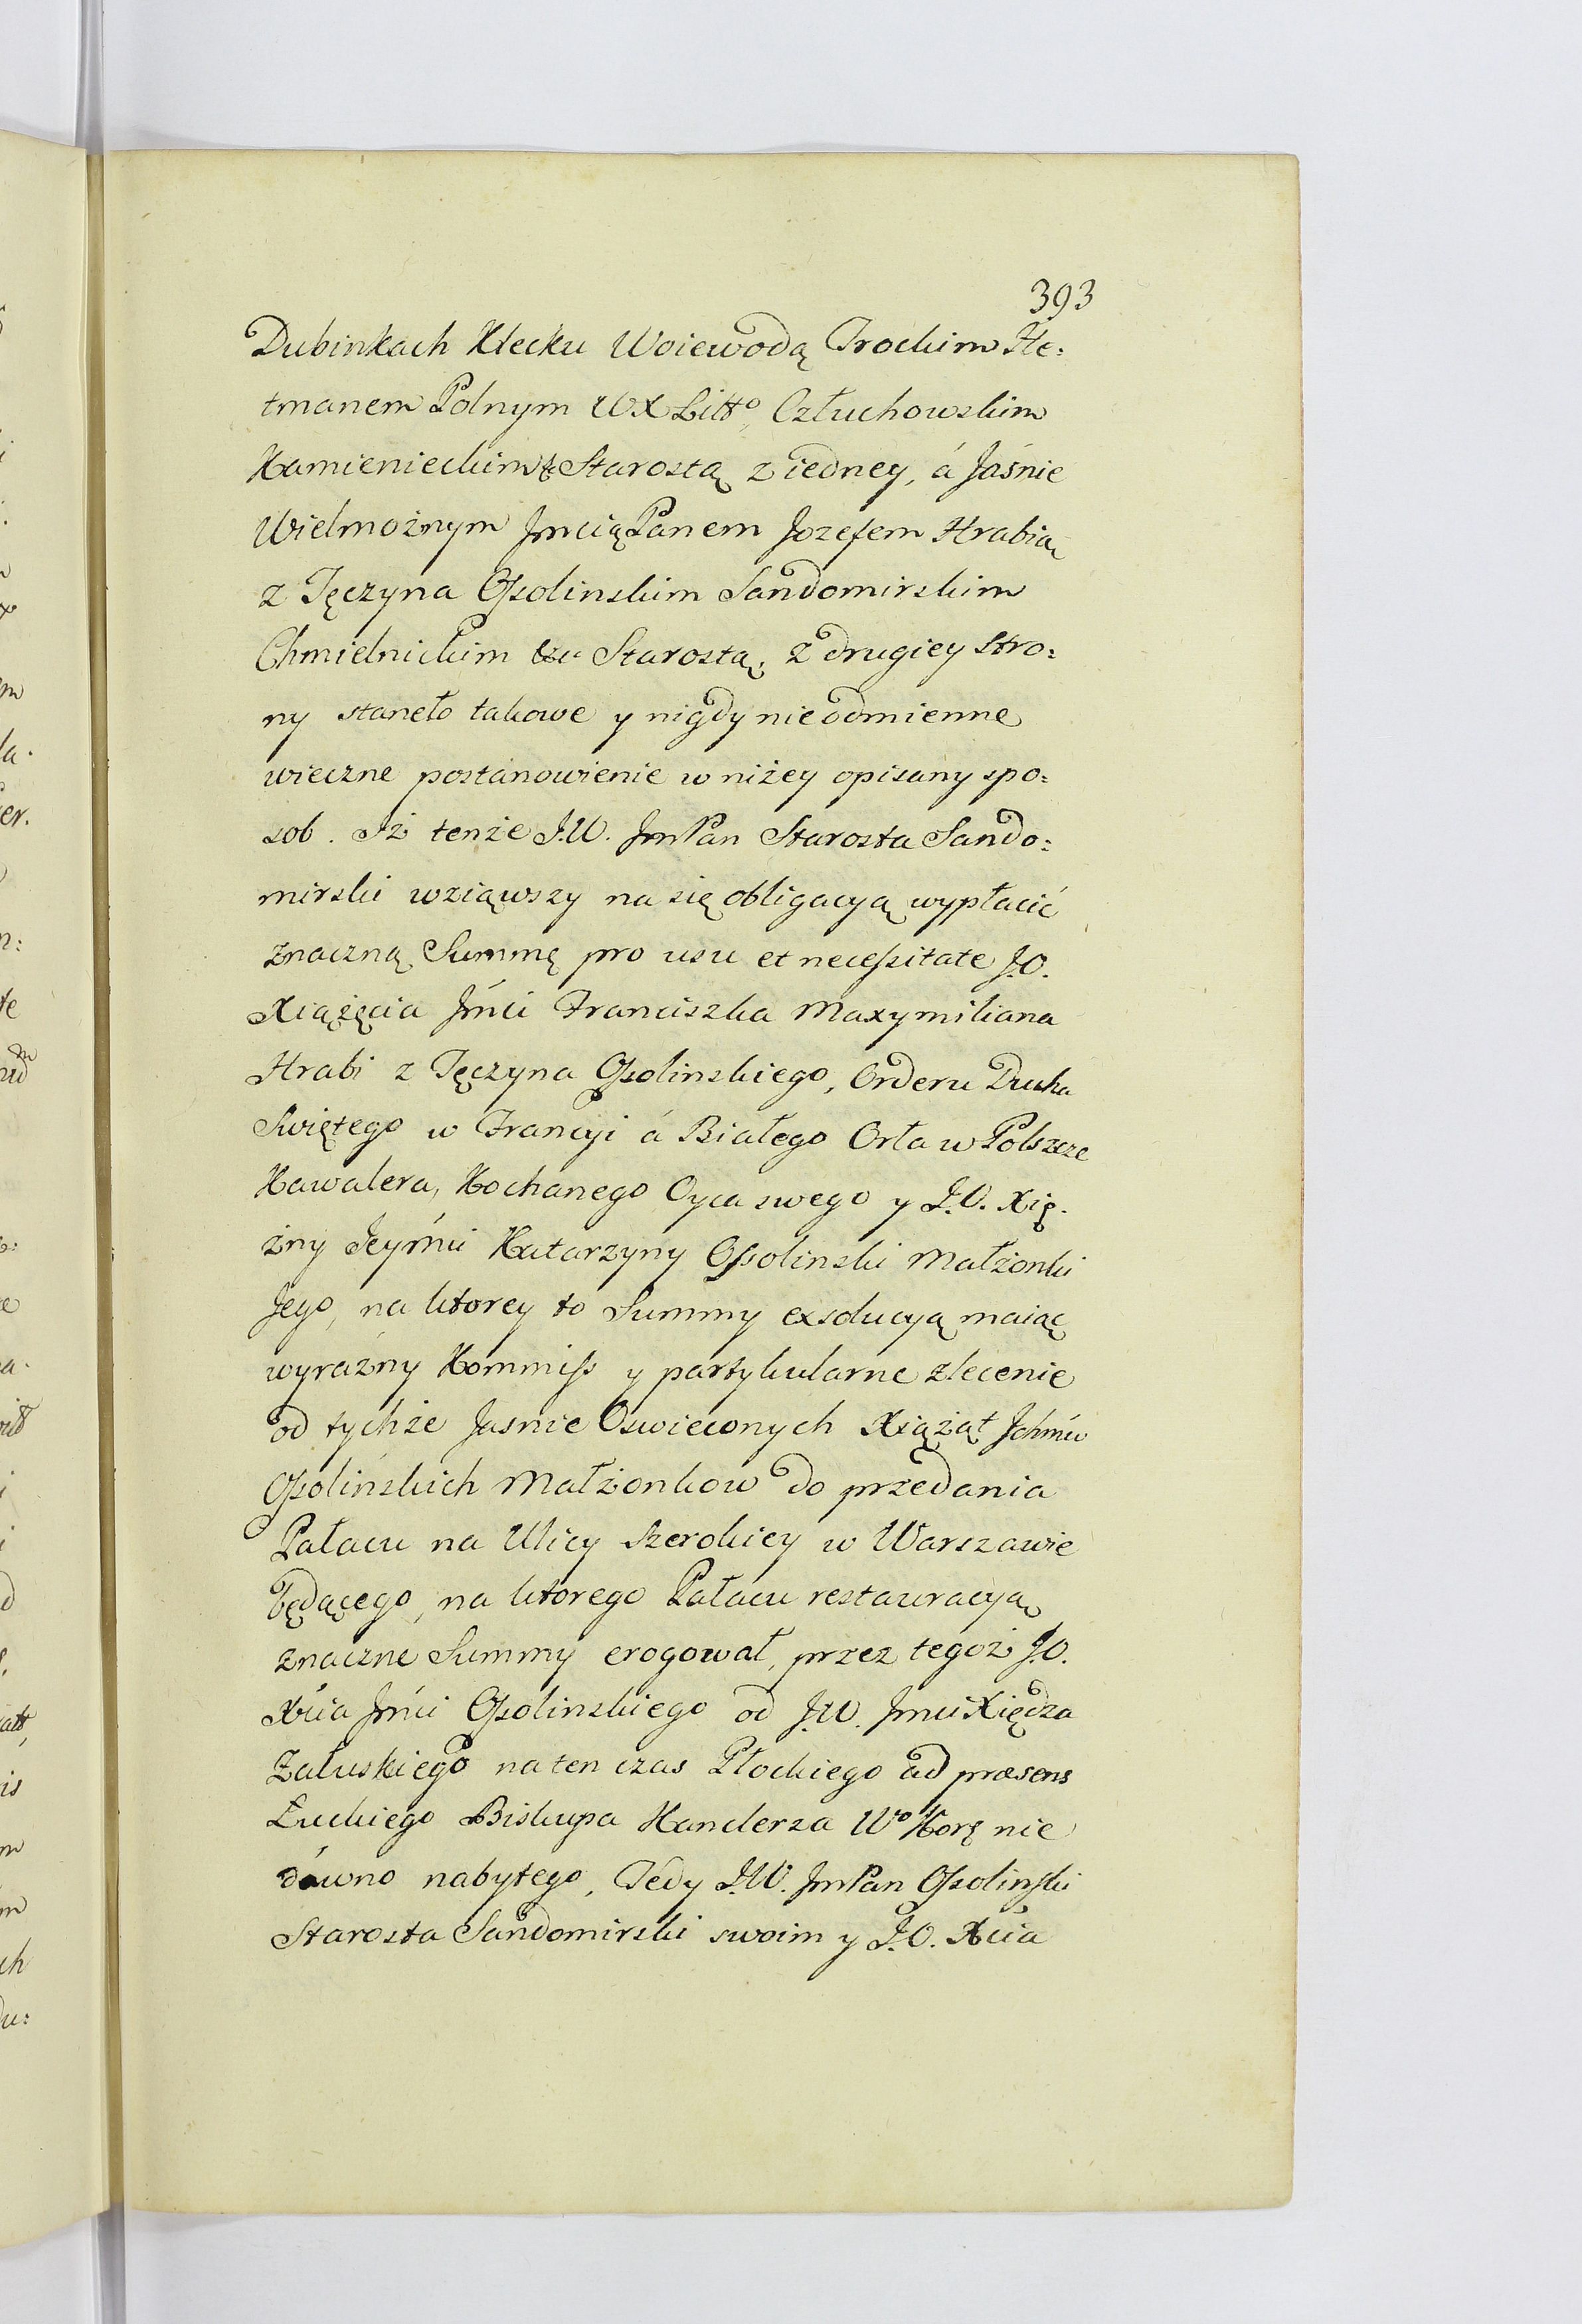 393
Dubinkach Klecku Woiewodą Trockim He:
tmanem Polnym WX Litt°, Człuchowskim
Kamienieckim & Starostą z iedney, á Jáśnie
Wielmożnym Jmcią Panem Jozefem Hrabią
z Tęczyna Ossolinskim Sandomirskim
Chmielnickim &c Starostą, z drugiey stro:
ny staneło takowe y nigdy nieodmienne
wieczne postanowienie w niżey opisany spo:
sob. Iż tenże J.W. JmPan Starosta Sando:
mirski wziąwszy na się obligacyą wypłacić
znaczną Summę pro usu et necessitate J.O.
Xiążęcia Jmći Franciszka Maxymiliana
Hrabi z Tęczyna Ossolinskiego, Orderu Ducha
Swiętego w Francyi á Białego Orła w Polszcze
Kawalera, Kochanego Oyca swego y J.O. Xię.
żny Jeymći Katarzyny Ossolinski Małżonki
Jego, na ktorey to Summy exsolucyą maiąc
wyraźny Kommiss y partykularne zlecenie
od tychże Jasnie Oswieconych Xiążąt Jchmću
Ossolińskich Małżonkow do przedania
Pałacu na Ulicy Szerokiey w Warszawie
będącego, na ktorego Pałacu restauracyą
znaczne Summy erogował, przez tegoż J.O.
Xcia Jmći Ossolinskiego od J.W. Jmci Xiędza
Załuskiego na ten czas Płockiego ad præsens
Łuckiego Biskupa Kanclerza W° Korę nie
dawno nabytego, Tedy J.W. JmPan Ossolinski
Starosta Sandomirski swoim y J.O. Xcia